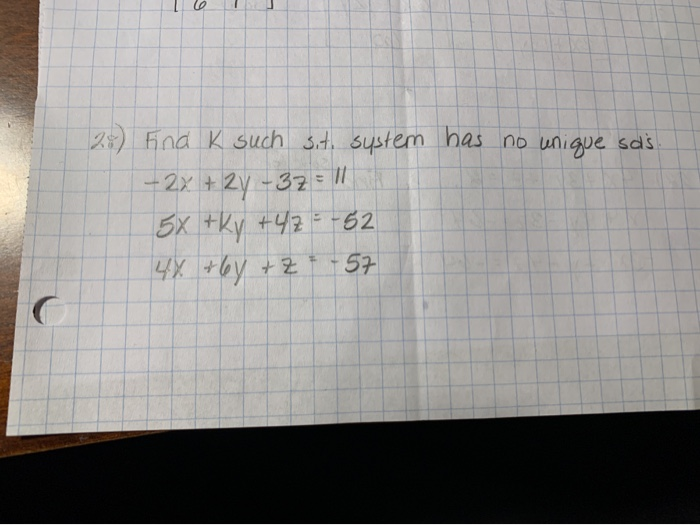 28.) Find K such s.t. system has no unique sol's.
-2x + 2y - 3z = 11
5x + Ky + 4z = -52
4x + 6y + z = -57